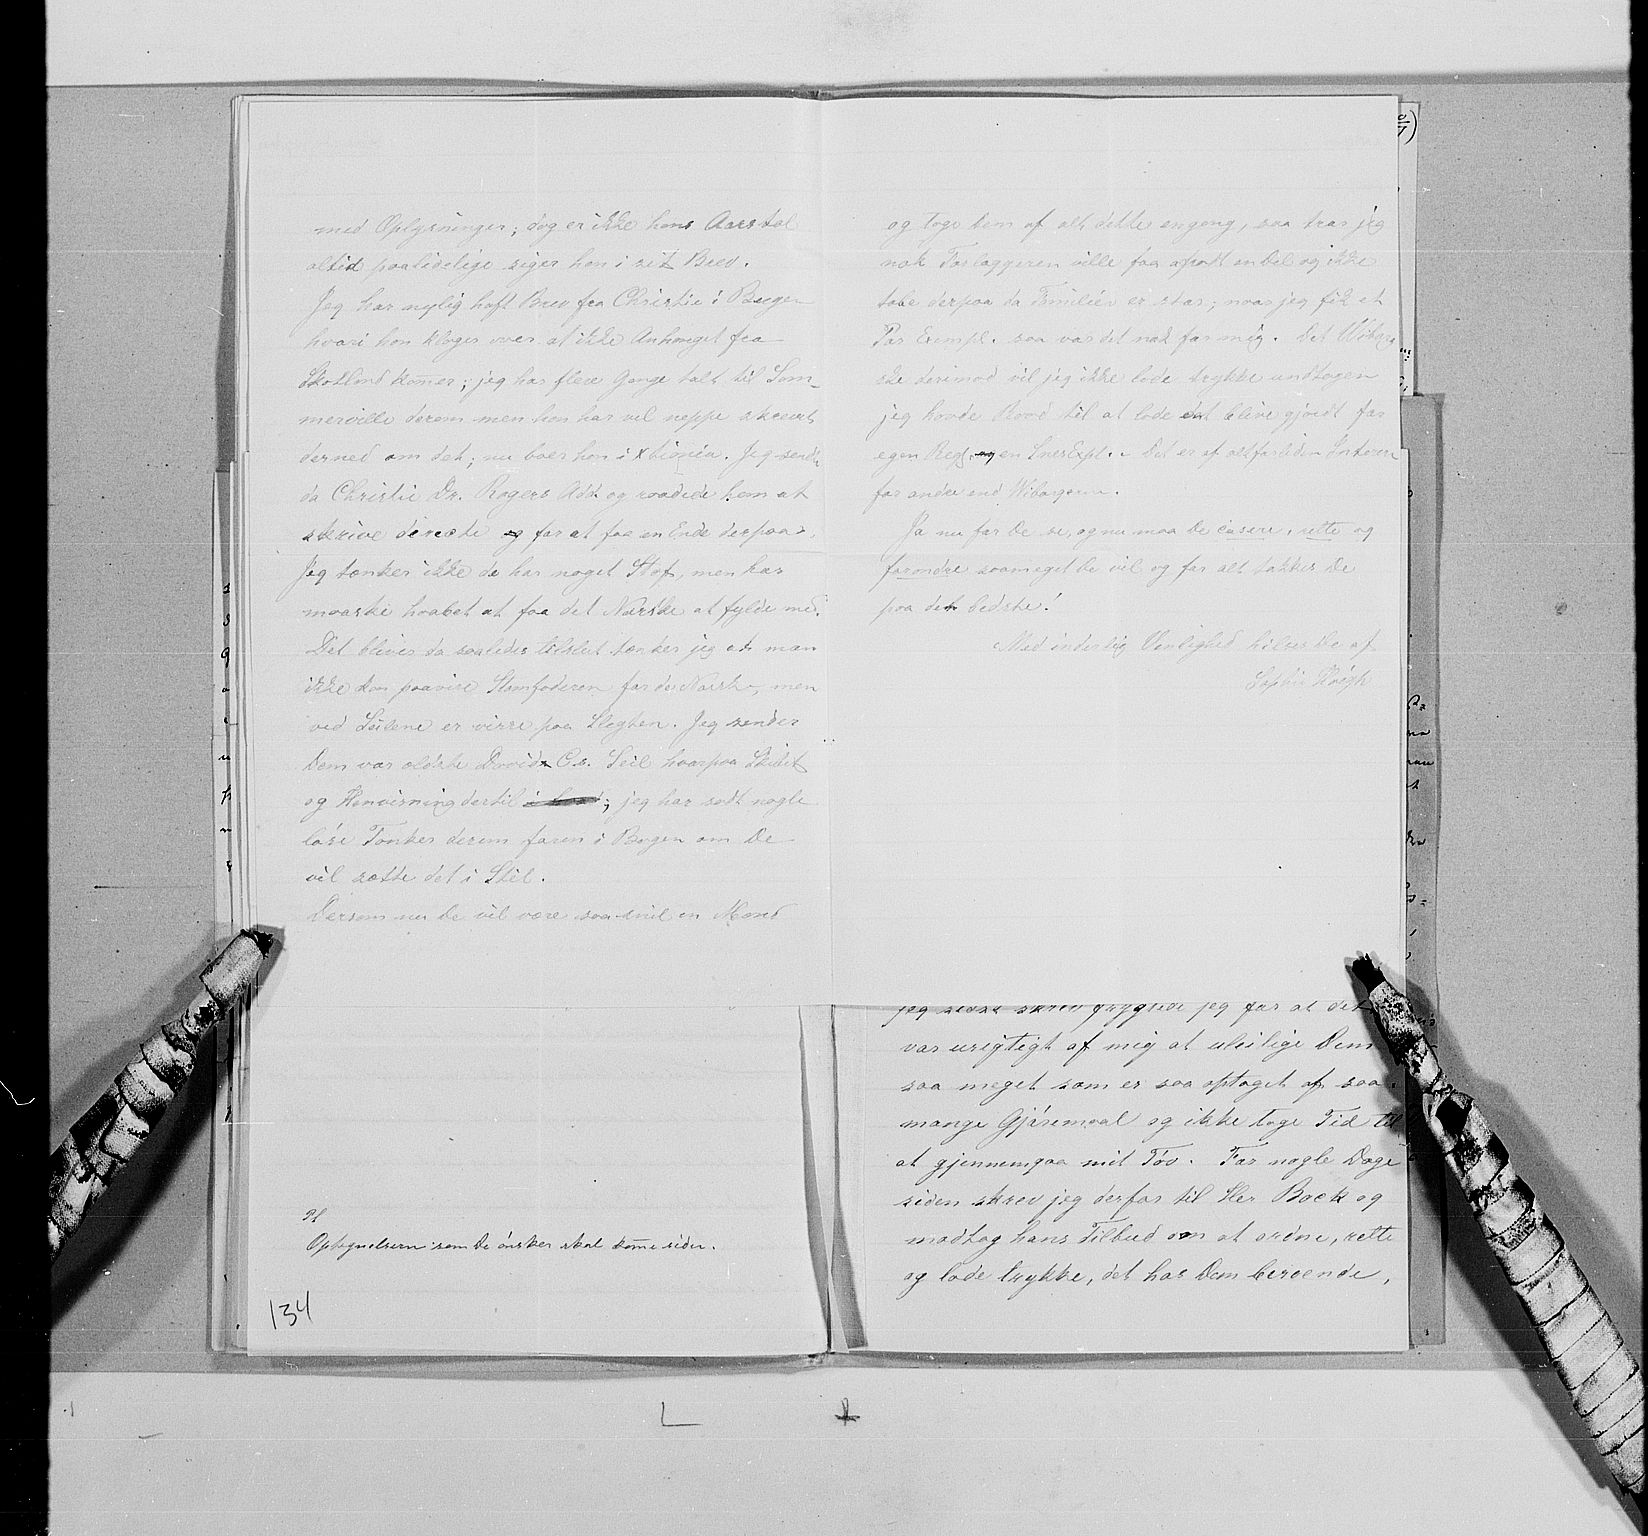 med Oplysninger; dog er ikke hans Aarstal
altid paalidelige siger han i sit Brev.
Jeg har nylig haft Brev fra Christie i Bergen
hvori han klager over at ikke Anhanget fra
Skotland kommer; jeg har flere Gange talt til Som-
merville derom men han har vel neppe skrevet
derned om det; nu boer han i Xtiania. Jeg sendte
da Christie Dr. Rogers Add. og raadede ham at
skrive directe og for at faa en Ende derpaa.
Jeg tænker ikke de har noget Stof, men har
maaske haabet at faa det Norske at fylde med.
Det bliver da saaledes tilslut tænker jeg at man
ikke kan paavise Stamfaderen for de Norske, men
ved Seilene er visse paa Slegten. Jeg sender
Dem vor ældste David C.s. Seil hvorpaa Skibet
og Henvisning dertil; jeg har sadt nogle
løse Tanker derom foran i Bogen om De
vil sætte det i Stil.
Dersom nu De vil være saa snil en Mand
Ps
Optegnelsern som De ønsker skal komme siden.
134
og tage dem af alt dette engang, saa tror jeg
nok Forlæggeren ville faa afsat en Del og ikke
tabe derpaa da Familien er stor; naar jeg fik et
Par Exempl. saa var det nok for mig. Det Wiborg
ske derimod vil jeg ikke lade trykke undtagen
jeg havde Raad til at lade det blive gjordt for
egen Regg. en Snes Expl. - Det er af altfor liden Interesse
for andre end Wiborgerne.
Ja nu får De se, og nu maa De casere, rette og
forandre saameget De vil og for alt takkes De
paa det bedste!
Med inderlig Venlighed hilses De af
Sophie
jeg sidst skrev frygtede jeg for at det
var urigtigt af mig at uleilige Dem
saa meget som er saa optaget af saa
mange Gjøremaal og ikke tage Tid til
at gjennemgaa mit Tøv. For nogle Dage
siden skrev jeg derfor til Her Back og
modtog hans Tilbud om at ordne, rette
og lade trykke, det har Dem beroende,